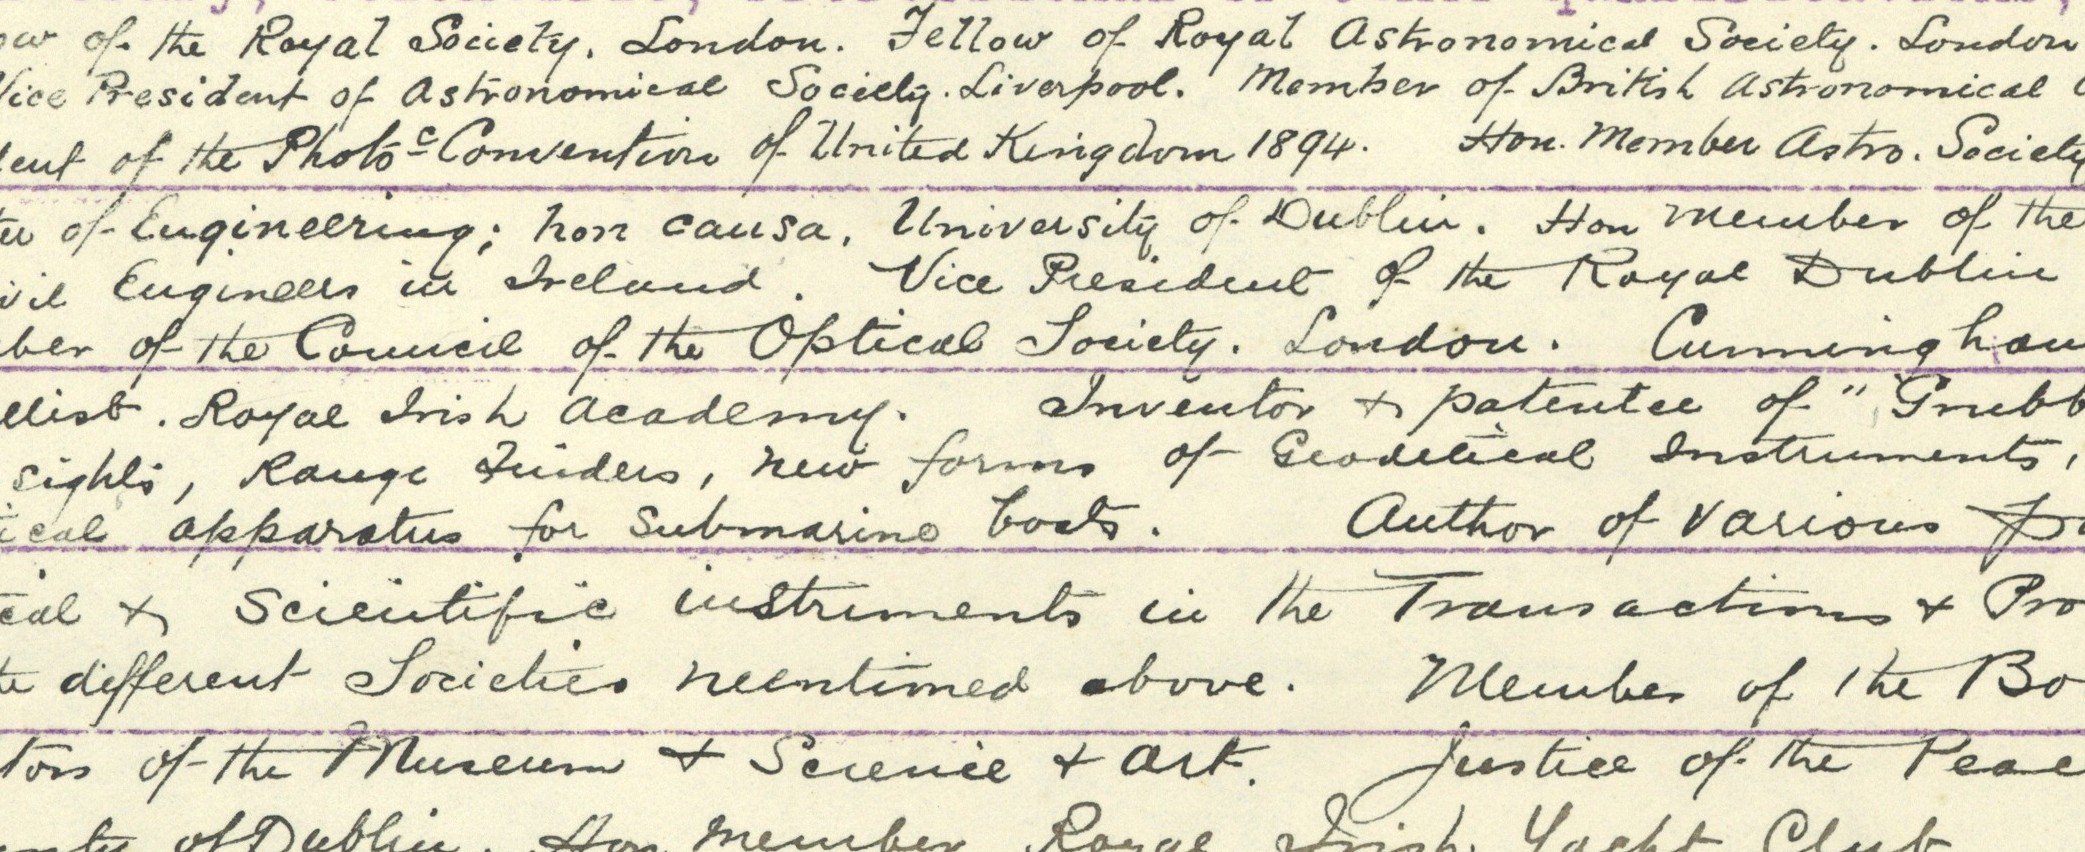 ow of the Royal Society. London. Fellow of Royal Astronomical Society. London
Vice President of Astronomical Society. Liverpool. Member of British Astronomical
dent of the Photoc Convention of United Kingdom 1894. Hon. Member Astro. Society
of Engineering; hon causa, University of Dublin. Hon Member of the
vil Engineers in Ireland. Vice President of the Royal Dublin
ber of the Council of the Optical Society. London. Cunningham
llist. Royal Irish Academy. Inventor & patentee of "Grubb
sights, Range Finders, new forms of Geodetical Instruments,
ical apparatus for submarine boats. Author of various
cal & Scientific instruments in the Transactions & Pro
te different Societies mentioned above. Member of the Bo
tors of the Museum & Science & Art. Justice of the Peace
unty of Dublin. Hon member Royal Irish Yacht Club